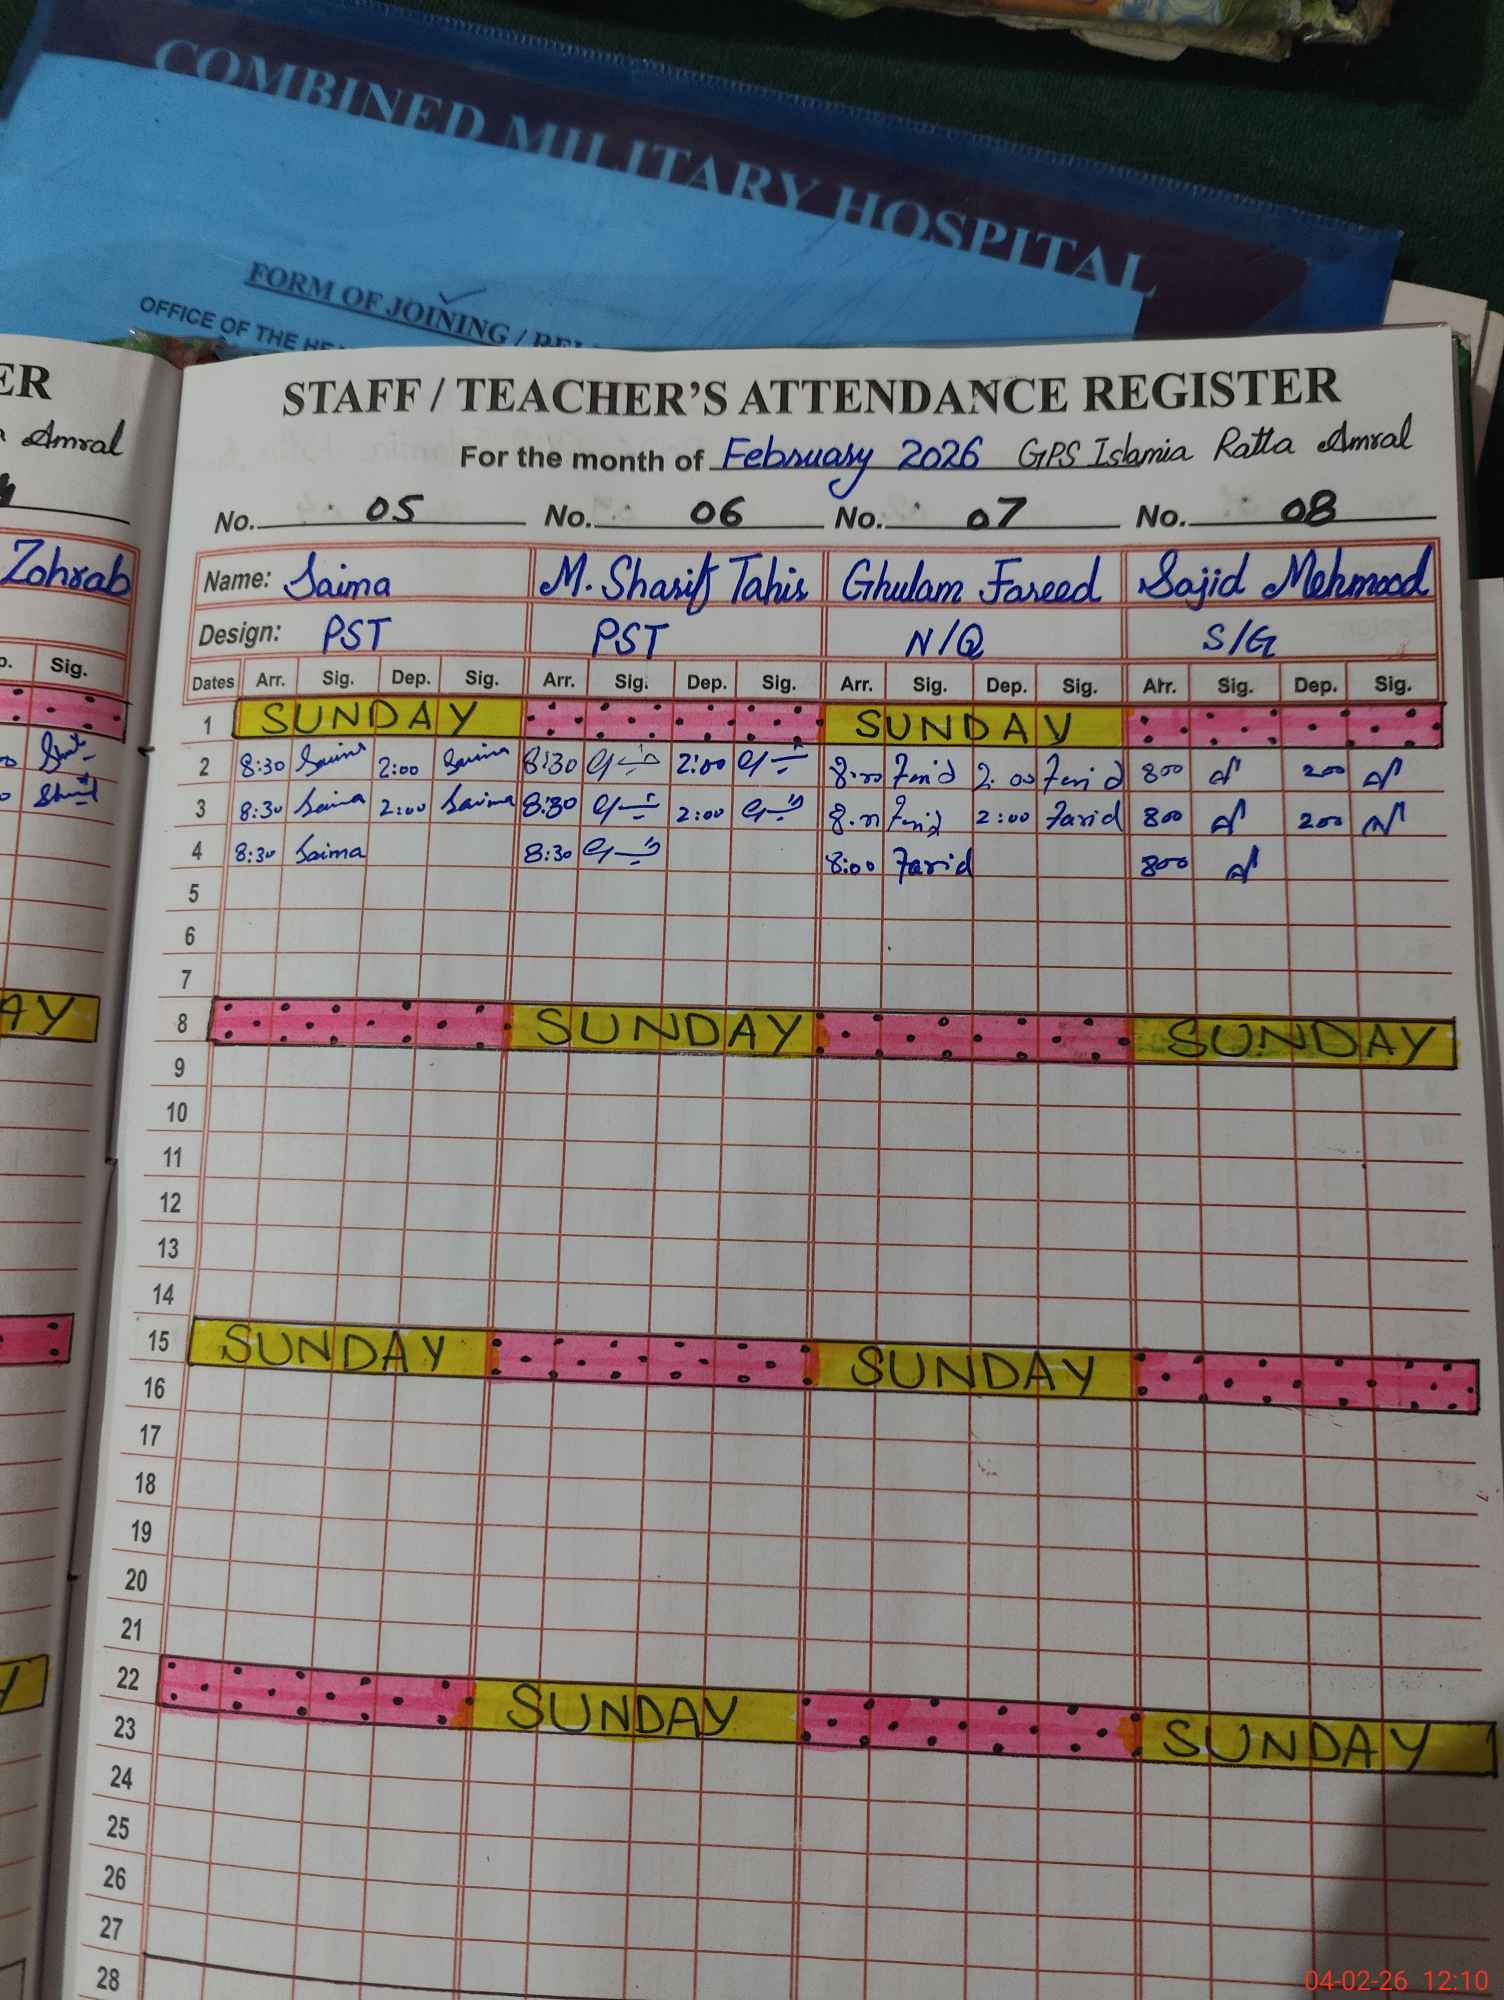 COMBINED MILITARY HOSPITAL
FORM OF JOINING /
OFFICE OF THE
ER
Amral
Zohrab
Sig.
AY
STAFF / TEACHER'S ATTENDANCE REGISTER
For the month of February 2026 GPS Islamia Ratta Amral
No. 05 No. 06 No. 07 No. 08
Name: Saima M. Sharif Tahir Ghulam Fareed Sajid Mehmood
Design: PST PST N/Q S/G
Dates Arr. Sig. Dep. Sig. Arr. Sig. Dep. Sig. Arr. Sig. Dep. Sig. Arr. Sig. Dep. Sig.
1 SUNDAY SUNDAY
2 8:30 Saima 2:00 Saima 8:30 2:00 8:00 Farid 2:00 Farid 800 200
3 8:30 Saima 2:00 Saima 8:30 2:00 Farid 2:00 Farid 800 200
4 8:30 Saima 8:30 8:00 Farid 800
5
6
7
8 SUNDAY SUNDAY
9
10
11
12
13
14
15 SUNDAY SUNDAY
16
17
18
19
20
21
22 SUNDAY SUNDAY
23
24
25
26
27
28
04-02-26 12:10